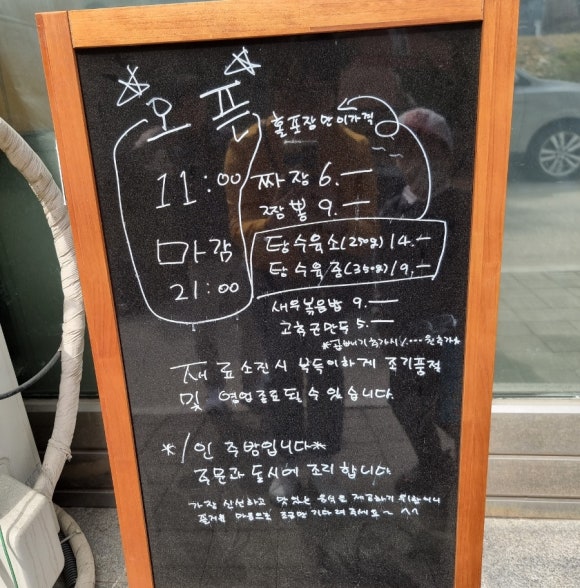 오픈
11:00
마감
21:00
홀포장만 이가격
짜장 6.-
짬뽕 9.-
탕수육 소(250g) 14.-
탕수육 중(350g) 19.-
새우볶음밥 9.-
고추군만두 5.-
*곱빼기 추가시 1.... 원 추가*
재료소진시 부득이하게 조기품절
및 영업종료될 수 있습니다.
*1인 주방입니다*
주문과 동시에 조리합니다.
가장 신선하고 맛있는 음식으로 제공하기 위함이니
즐거운 마음으로 조금만 기다려주세요~ ^^